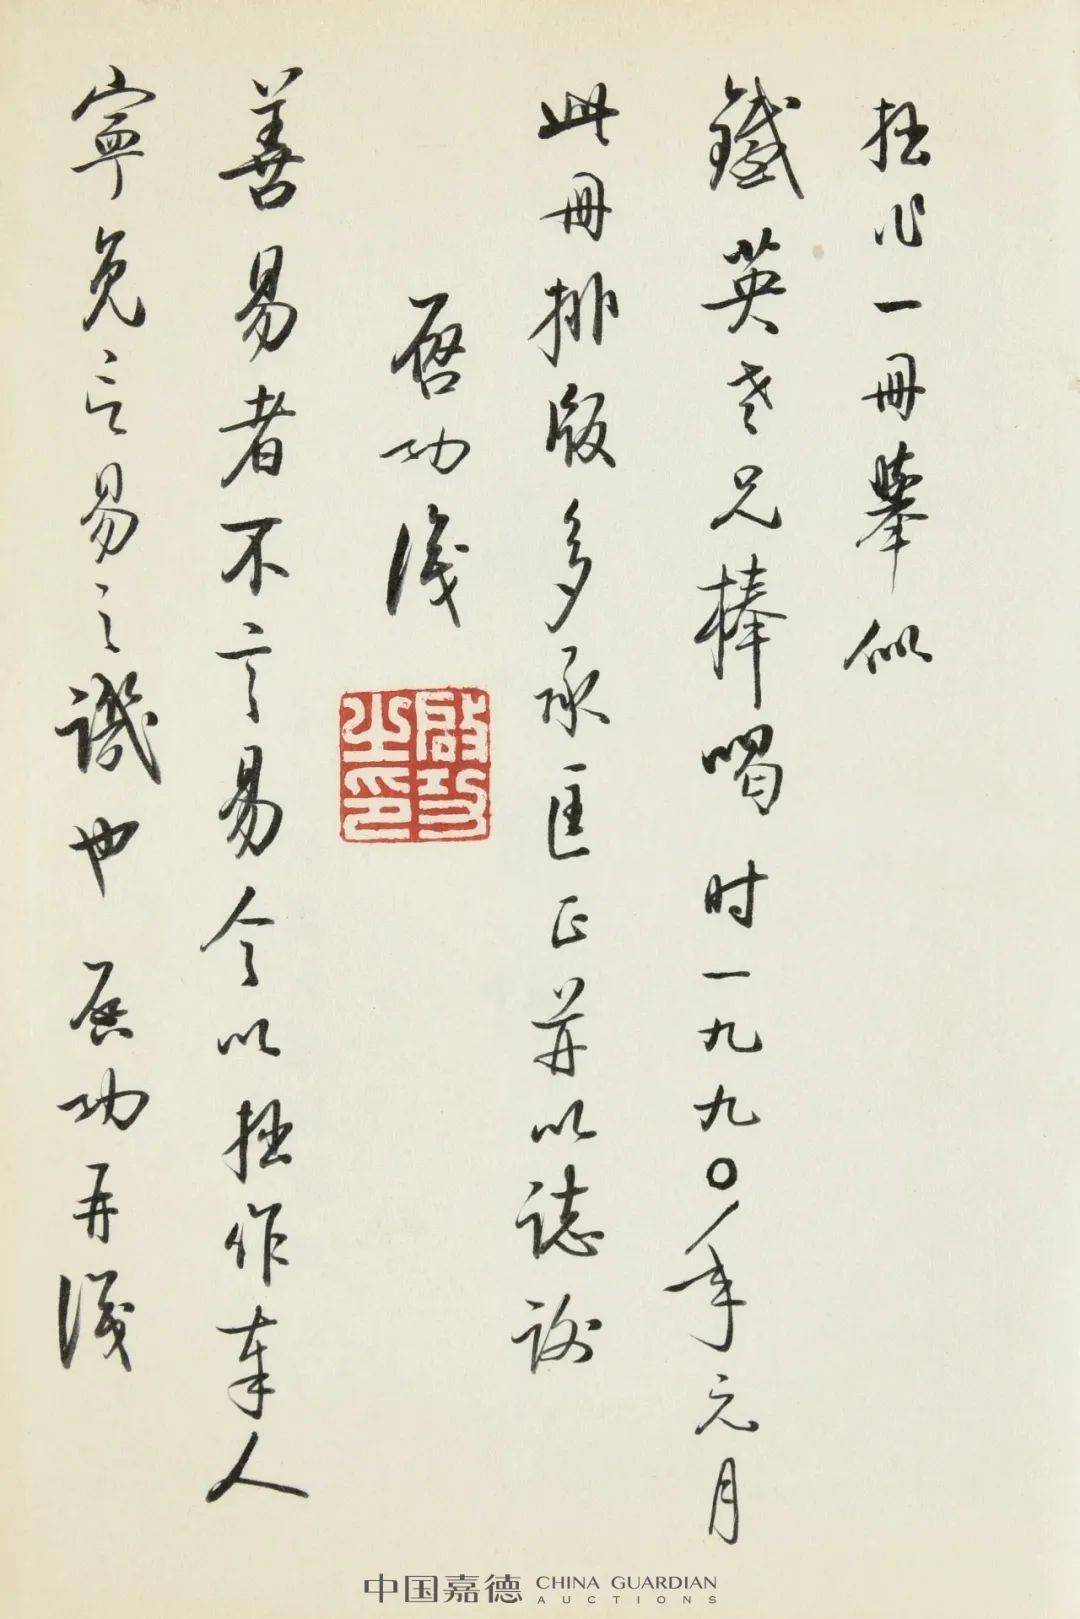 拙作一冊舉似
鐵英老兄棒喝 时一九九〇年元月
此冊排版多承匡正并以誌謝
啓功識
啟功之印
善易者不言易今以拙作奉人
寧免言易之譏也 啓功再識
中国嘉德 CHINA GUARDIAN AUCTIONS